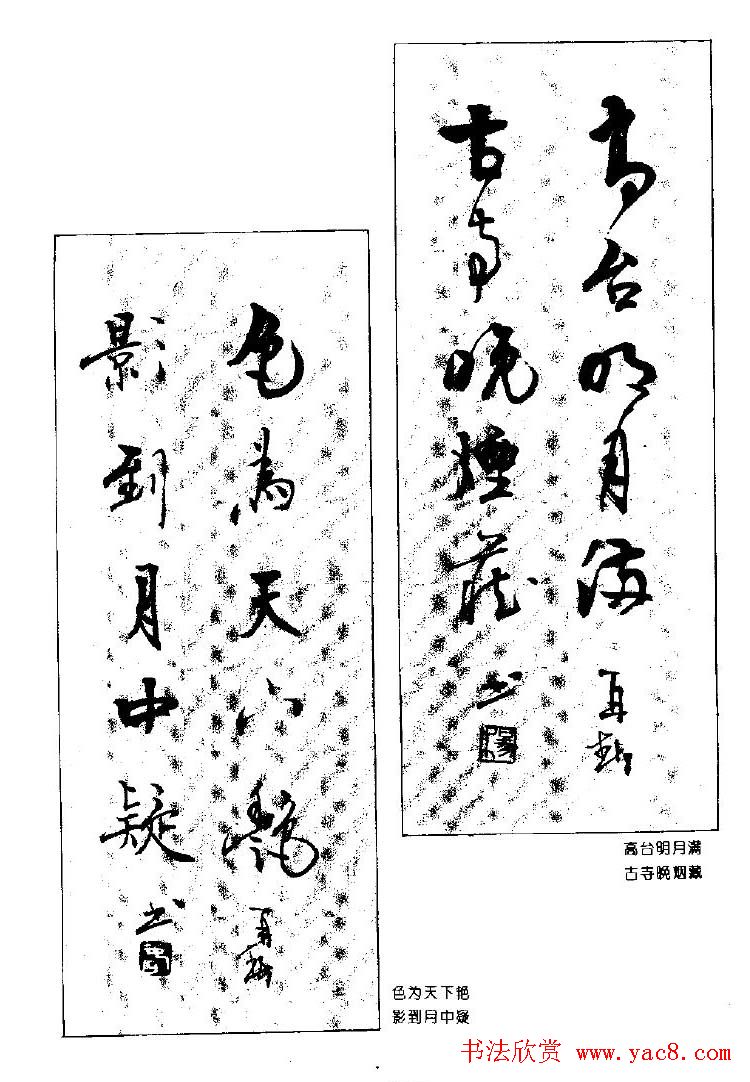 高台明月满
古寺晚烟藏
书
高台明月满
古寺晚烟藏
色为天下艳
影到月中疑
书
色为天下艳
影到月中疑
书法欣赏 www.yac8.com